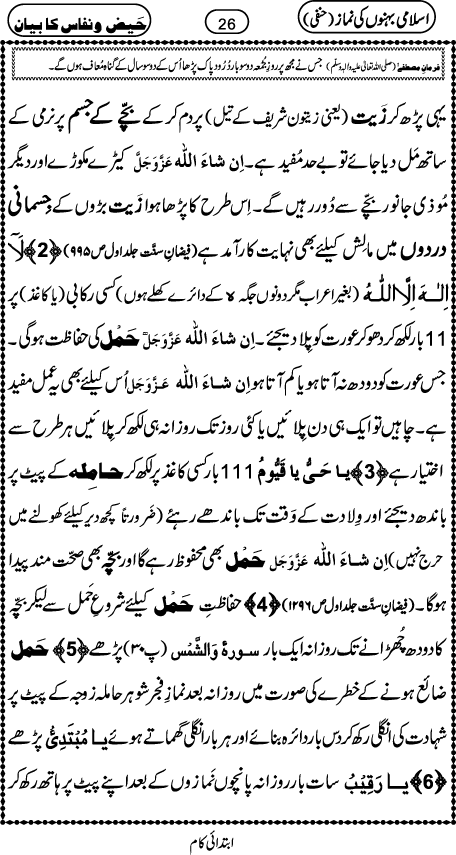 اسلامی بہنوں کی نماز (حنفی)
26
حیض و نفاس کا بیان
فرمانِ مصطفےٰ (صلی اللہ تعالیٰ علیہ واٰلہٖ وسلّم) جس نے مجھ پر روزِ جُمعہ دو سو بار دُرُود پاک پڑھا اُس کے دو سو سال کے گناہ مُعاف ہوں گے۔
یہی پڑھ کر زَیت (یعنی زیتون شریف کے تیل) پر دم کر کے بچّے کے جسم پر نرمی کے
ساتھ مَل دیا جائے تو بے حد مُفید ہے۔ اِن شاءَ اللہ عَزَّوَجَلَّ کیڑے مکوڑے اور دیگر
مُوذی جانور بچّے سے دُور رہیں گے۔ اِس طرح کا پڑھا ہوا زَیت بڑوں کے جسمانی
دردوں میں مالِش کیلئے بھی نہایت کار آمد ہے (فیضانِ سنّت جلد اول ص ۹۹۵) ﴿2﴾ لَآ
اِلٰـهَ اِلَّا اللّٰهُ (بغیر اعراب مگر دونوں جگہ ہ کے دائرے کھلے ہوں) کسی رکابی (یا کاغذ) پر
11 بار لکھ کر دھو کر عورت کو پِلا دیجئے۔ اِن شاءَ اللہ عَزَّوَجَلَّ حَمْل کی حفاظت ہوگی۔
جس عورت کو دودھ نہ آتا ہو یا کم آتا ہو اِن شاءَ اللہ عَزَّوَجَلَّ اُس کیلئے بھی یہ عمل مفید
ہے۔ چاہیں تو ایک ہی دن پلائیں یا کئی روز تک روزانہ ہی لکھ کر پلائیں ہر طرح سے
اختیار ہے ﴿3﴾ یا حَیُّ یا قَیُّومُ 111 بار کسی کاغذ پر لکھ کر حامِلہ کے پیٹ پر
باندھ دیجئے اور وِلادت کے وَقت تک باندھے رہئے (ضَرورتاً کچھ دیر کیلئے کھولنے میں
حرج نہیں) اِن شاءَ اللہ عَزَّوَجَلَّ حَمْل بھی محفوظ رہے گا اور بچّہ بھی صحّت مند پیدا
ہوگا۔ (فیضانِ سنّت جلد اول ص ۱۲۹۶) ﴿4﴾ حفاظتِ حَمْل کیلئے شروعِ حَمل سے لیکر بچّہ
کا دودھ چُھڑانے تک روزانہ ایک بار سورۂ وَالشَّمْس (پ ۳۰) پڑھے ﴿5﴾ حَمْل
ضائع ہونے کے خطرے کی صورت میں روزانہ بعد نمازِ فجر شوہر حاملہ زوجہ کے پیٹ پر
شہادت کی انگلی رکھ کر دس بار دائرہ بنائے اور ہر بار انگلی گھماتے ہوئے یا مُبْتَدِئُ پڑھے
﴿6﴾ یا رَقِیْبُ سات بار روزانہ پانچوں نَمازوں کے بعد اپنے پیٹ پر ہاتھ رکھ کر
ابتدائی کام